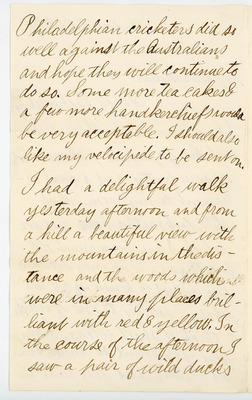 Philadelphian cricketers did so
well against the Australians
and hope they will continue to
do so. Some more tea cakes &
a few more handkerchiefs would
be very acceptable. I should also
like my velocipede to be sent on.
I had a delightful walk
yesterday afternoon and from
a hill a beautiful view with
the mountains in the dis-
tance and the woods which
were in many places bril-
liant with red & yellow. In
the course of the afternoon I
saw a pair of wild ducks